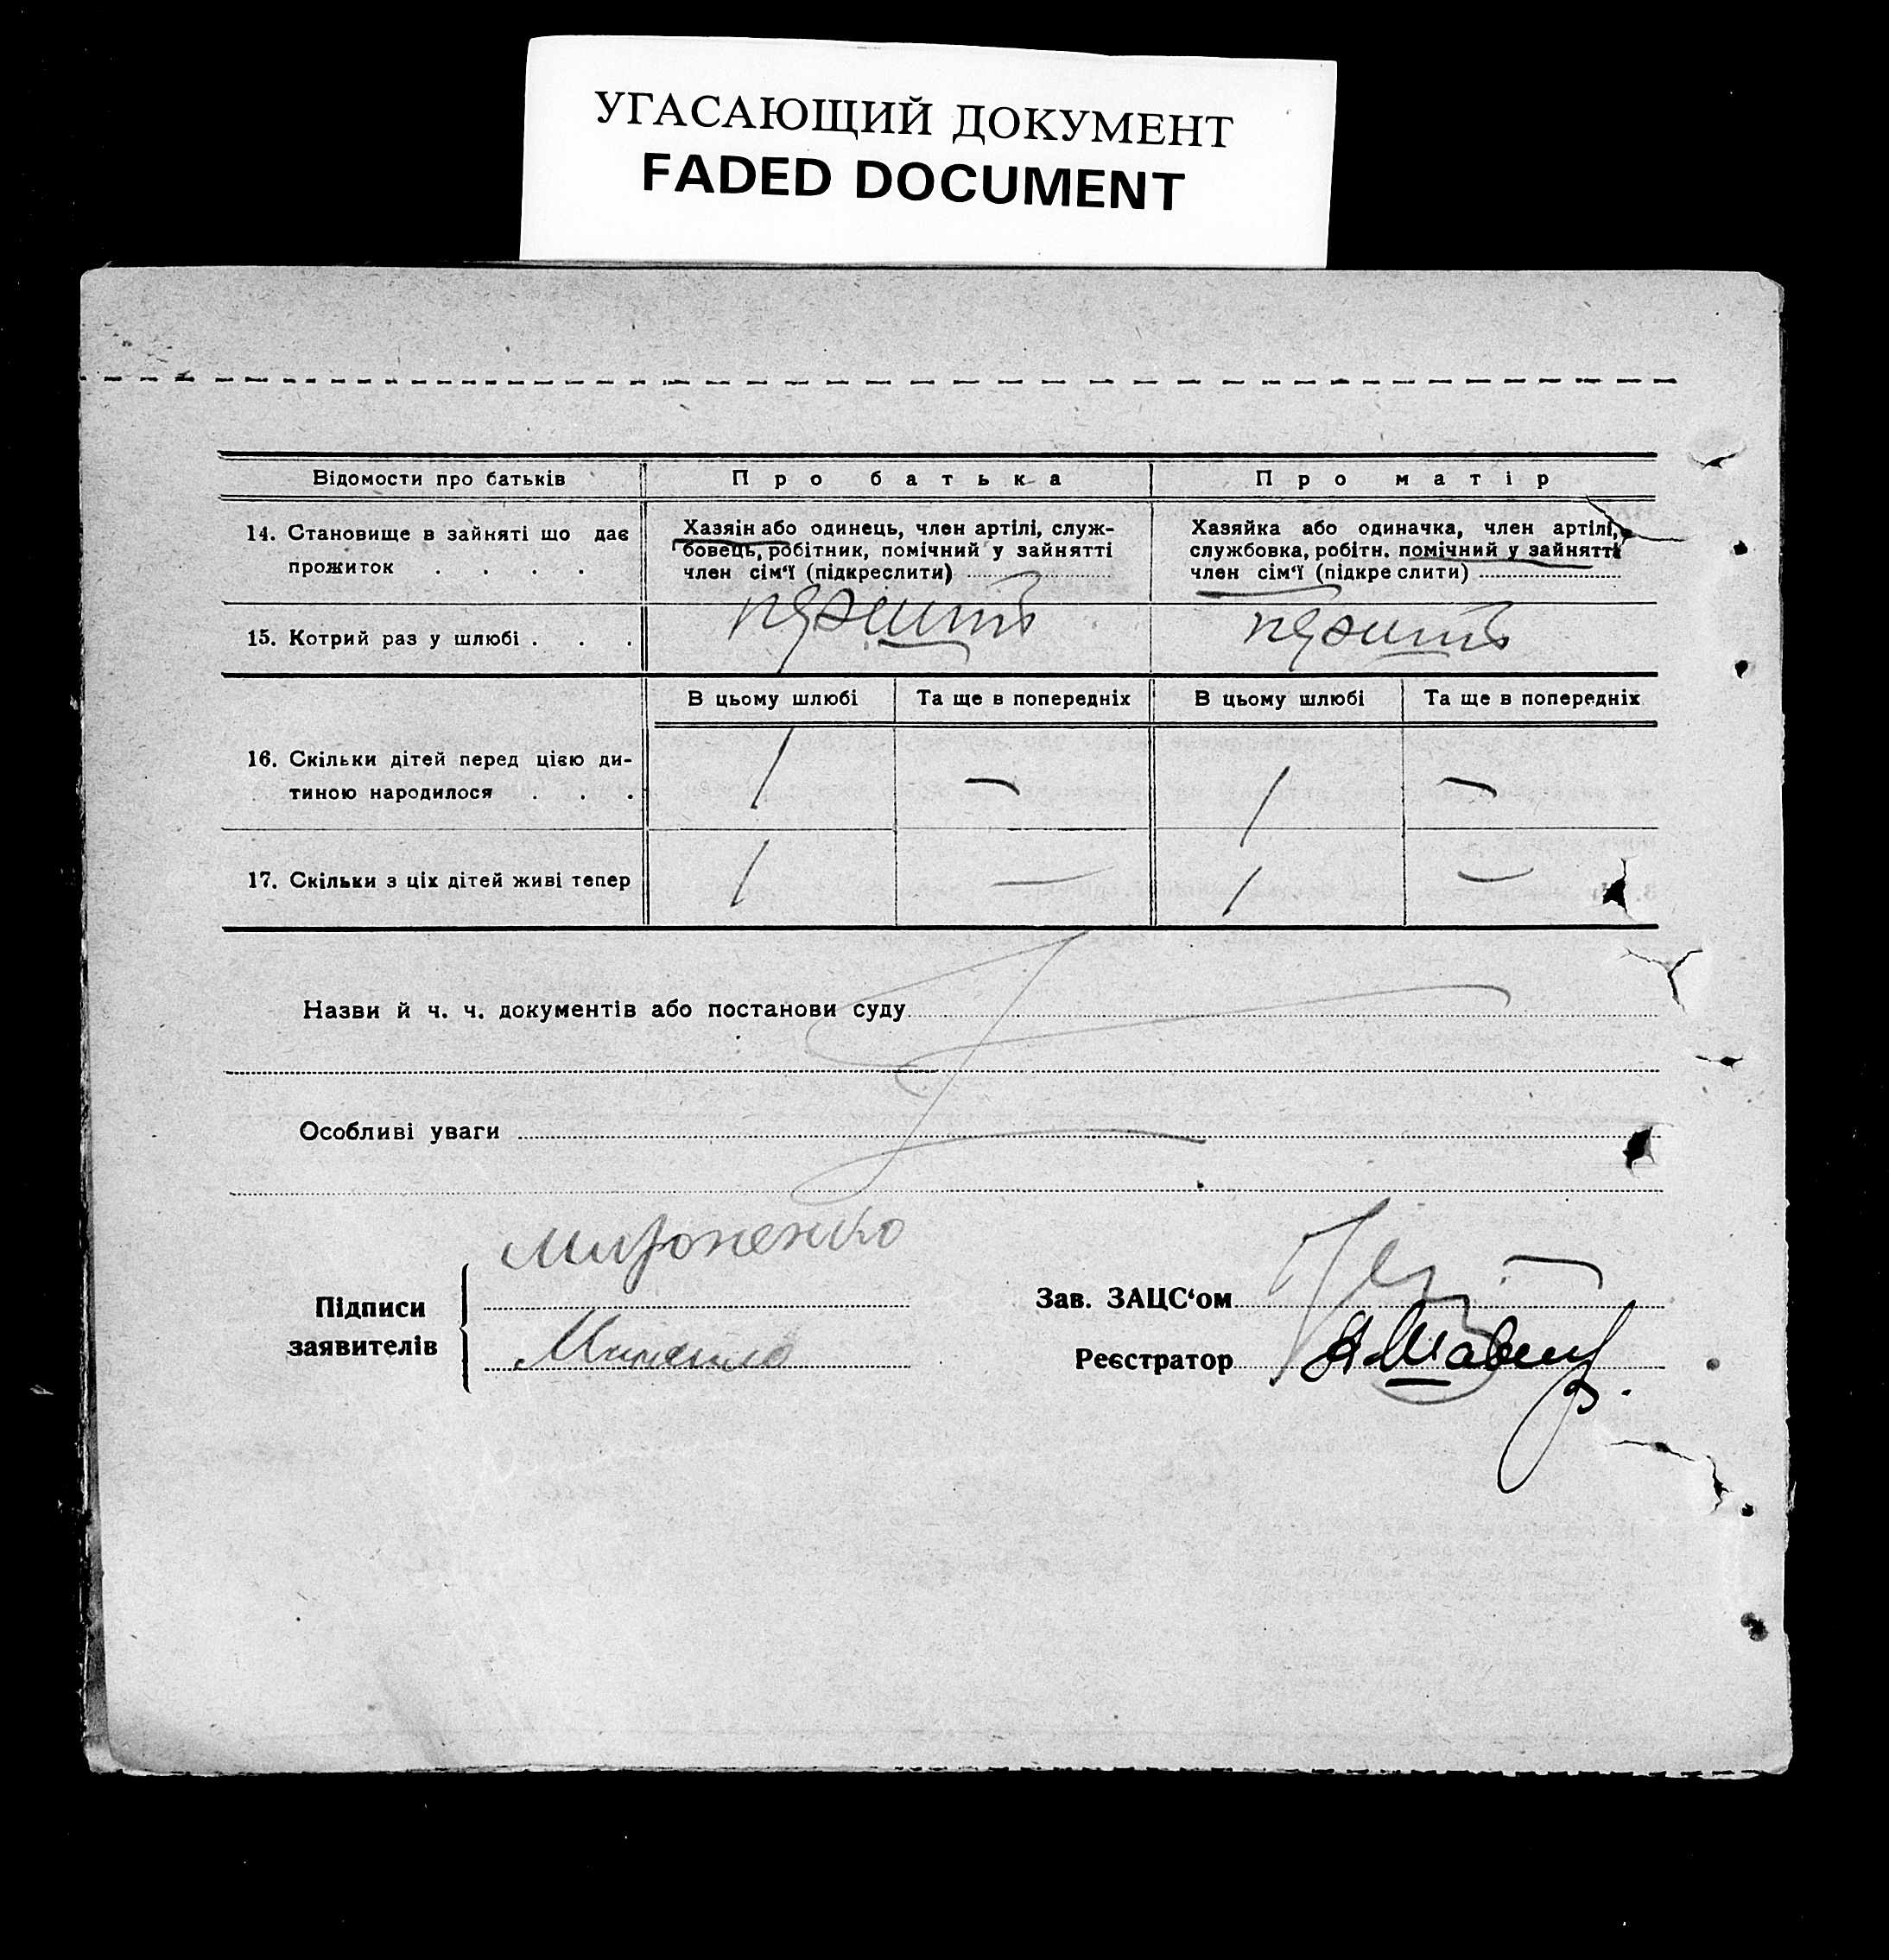 УГАСАЮЩИЙ ДОКУМЕНТ
FADED DOCUMENT
Відомости про батьків
Про батька
Про матір
14. Становище в зайняті що дає
прожиток . . . .
Хазяїн або одинець, член артілі, служ-
бовець, робітник, помічний у зайнятті
член сім'ї (підкреслити)
Хазяйка або одиначка, член артілі,
службовка, робітн. помічний у зайнятті
член сім'ї (підкреслити)
15. Котрий раз у шлюбі . . .
В цьому шлюбі
Та ще в попередніх
В цьому шлюбі
Та ще в попередніх
16. Скільки дітей перед цією ди-
тиною народилося . . .
1
—
1
—
17. Скільки з ціх дітей живі тепер
1
—
1
—
Назви й ч. ч. документів або постанови суду
Особливі уваги
Мироненко
Підписи
заявителів
Зав. ЗАЦС'ом
Реєстратор